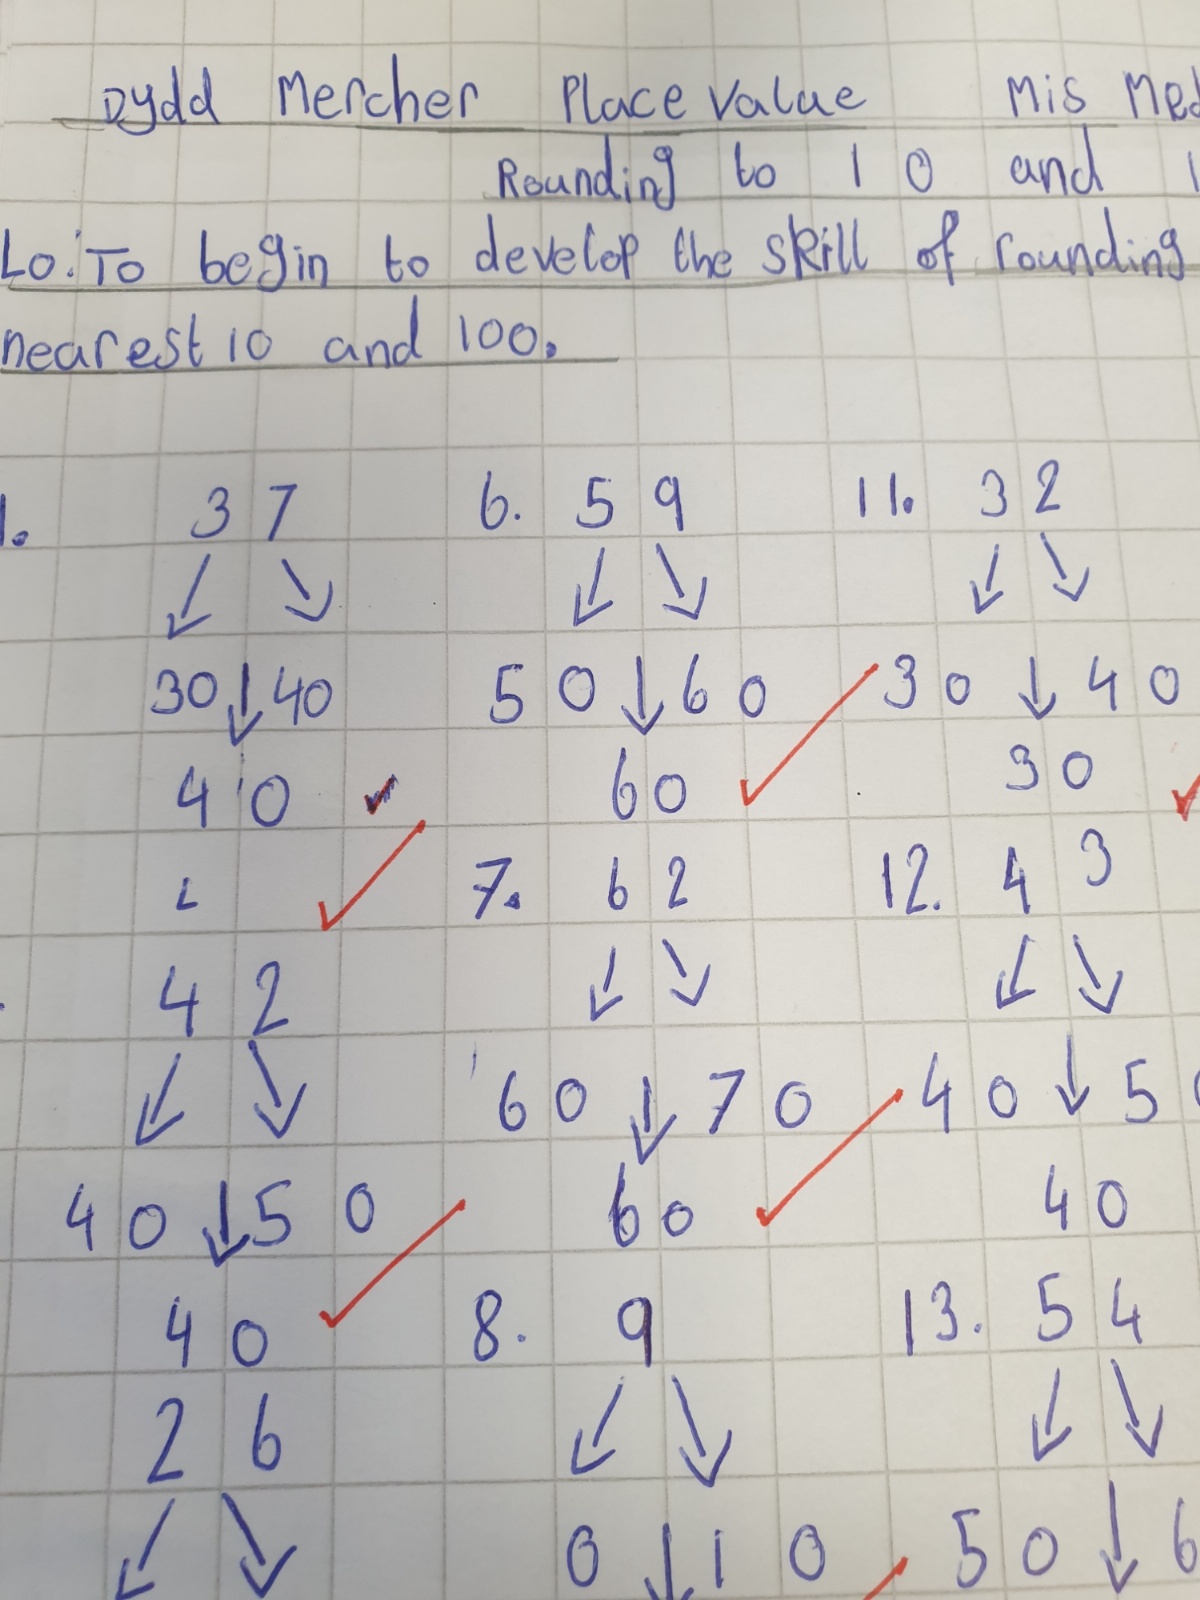 Dydd Mercher Place Value Mis
Rounding to 10 and
Lo: To begin to develop the skill of rounding
nearest 10 and 100.
1. 37 6. 59 11. 32
30 40 50 60 30 40
40 60 30
7. 62 12. 43
42
60 70 40 50
40 50 60 40
40 8. 9 13. 54
26
0 10 50 6